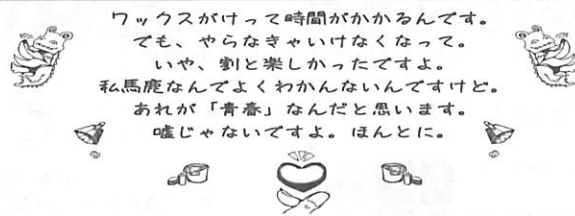 ワックスがけって時間がかかるんです。
でも、やらなきゃいけなくなって。
いや、割と楽しかったですよ。
私馬鹿なんでよくわかんないんですけど。
あれが「青春」なんだと思います。
嘘じゃないですよ。ほんとに。